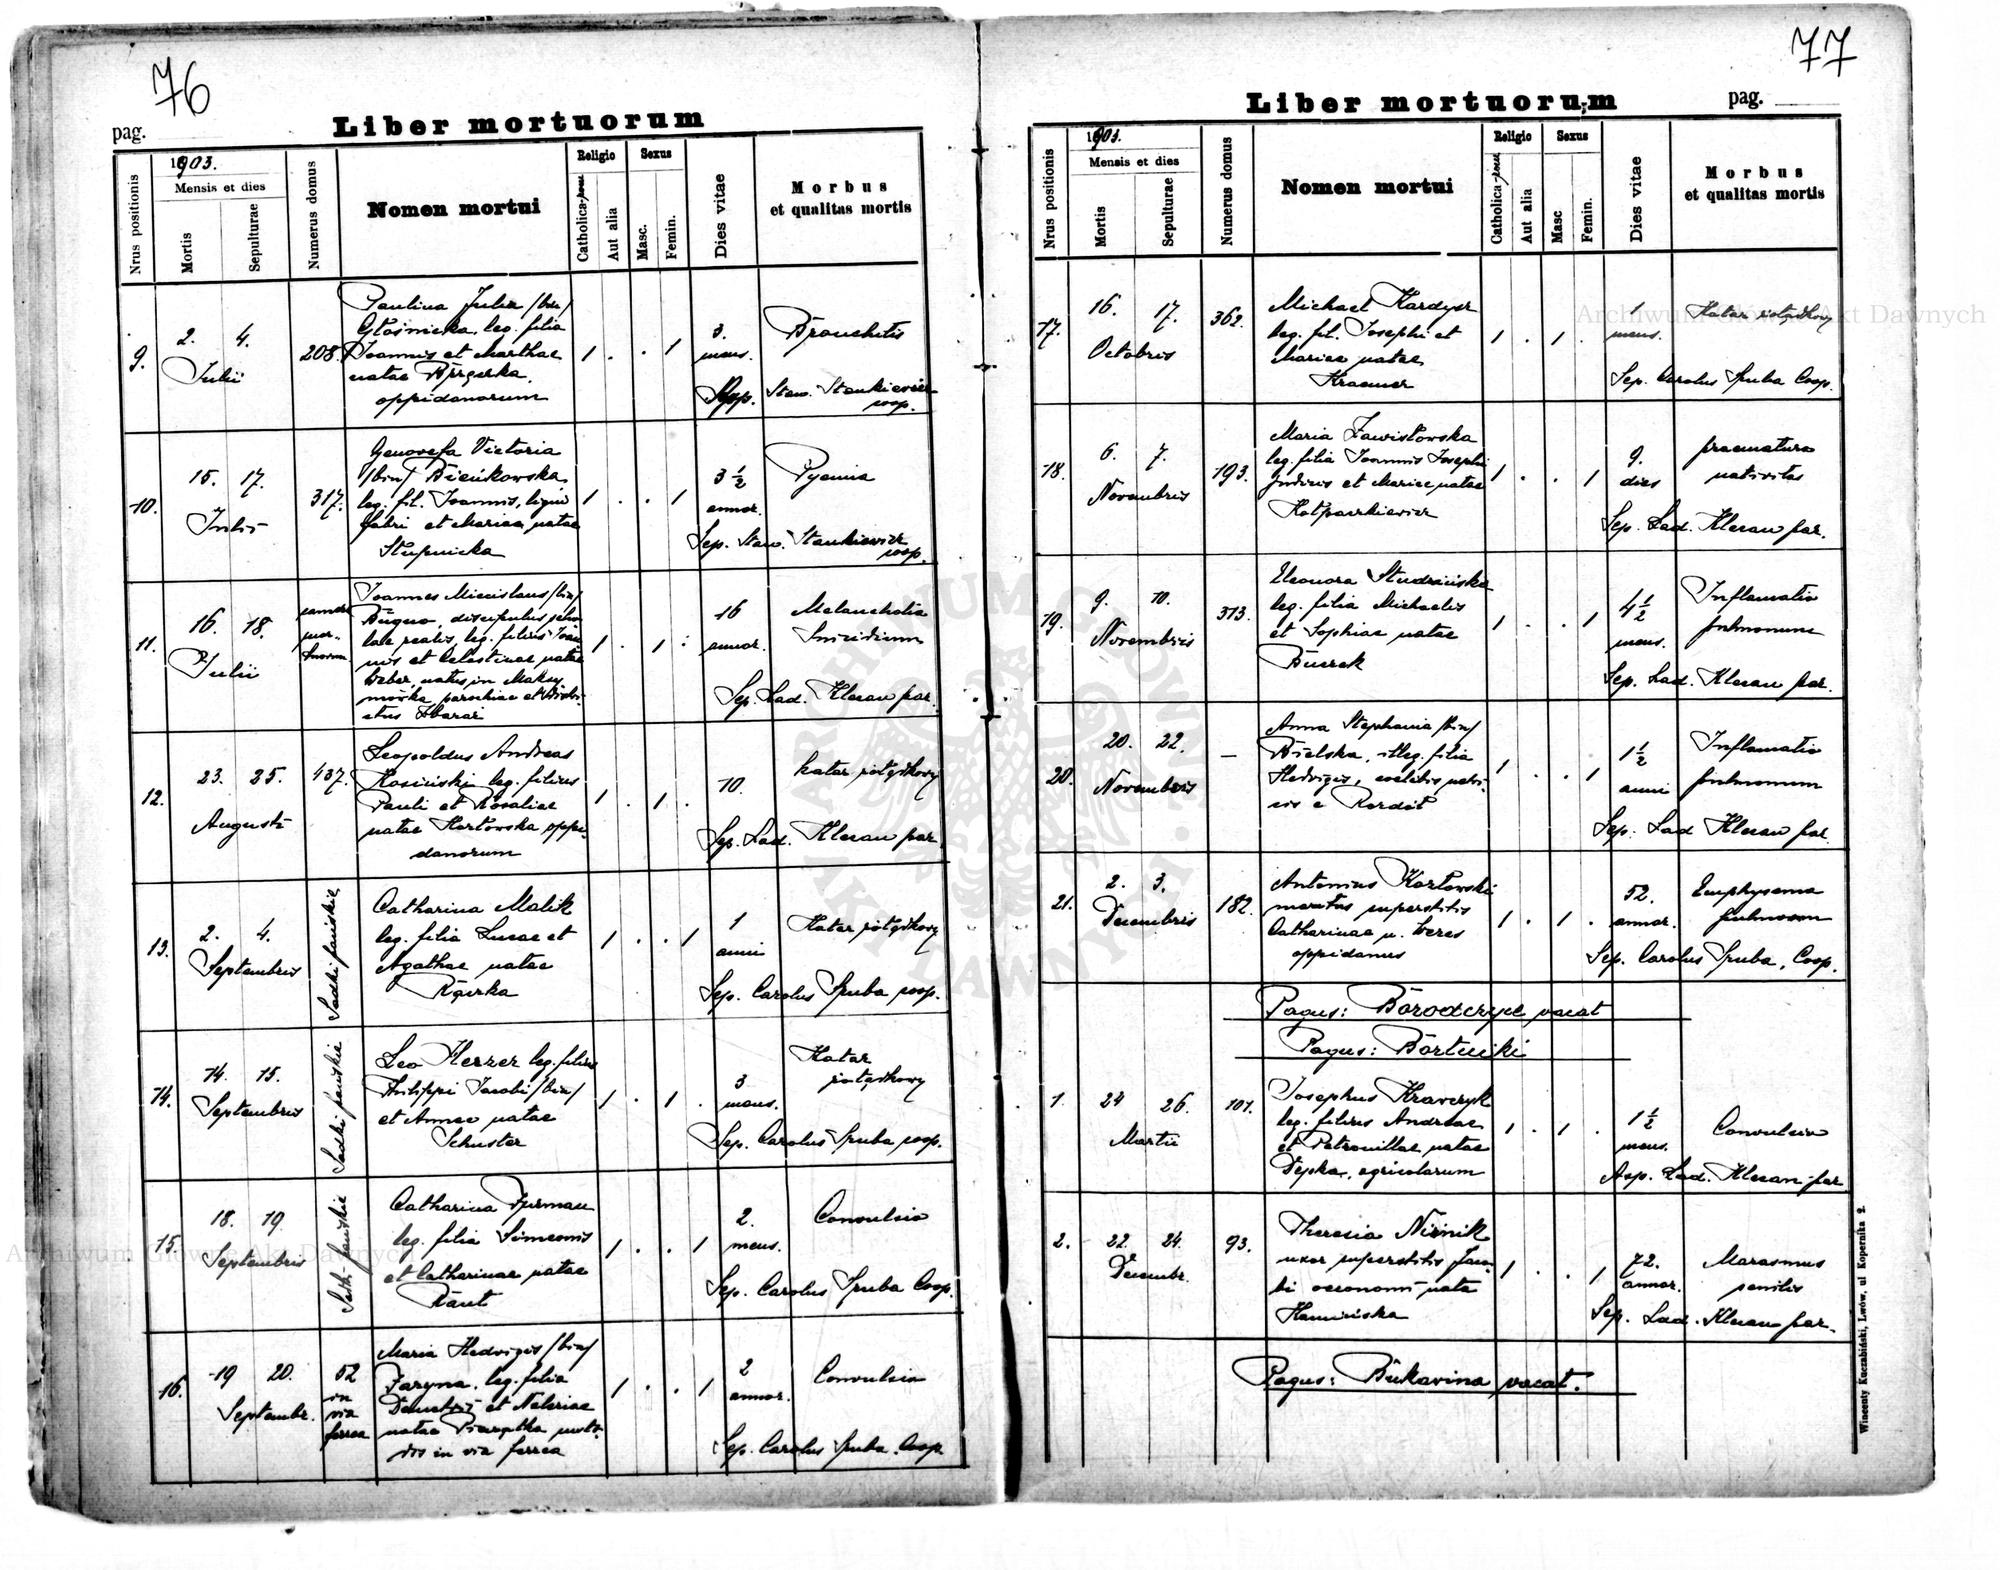 76
pag.
Liber mortuorum
Nrus positionis
1903.
Mensis et dies
Mortis
Sepulturae
Numerus domus
Nomen mortui
Religio
Catholica
Aut alia
Sexus
Masc.
Femin.
Dies vitae
Morbus
et qualitas mortis
9.
2. 4.
Julii
208.
Paulina Julia /bin/
Głośnicka, leg. filia
Joannis et Marthae
natae
oppidanorum
1 . . 1
3.
mens.
Bronchitis
Sep. Stan. Stankiewicz
coop.
10.
15. 17.
Julii
317.
Genovefa Victoria
/bin/ Bieńkowska
leg. fil. Joannis, ligni
fabri et Mariae natae
Słupnicka
1 . . 1
3 1/2
annor.
Pyemia
Sep. Stan. Stankiewicz
coop.
11.
16. 18.
Julii
Joannes Miecislaus /bin/
discipulus scho-
lae realis, leg. filius Joan-
nis et Celestinae natae
Weber, natus in Maksy-
mówka, parochiae et
Zbaraż
1 . 1 .
16
annor.
Melancholia
Suicidium
Sep. Lad. Klesan par.
12.
23. 25.
Augusti
437.
Leopoldus Andreas
Kosiński leg. filius
Pauli et Rosaliae
natae Kozłowska oppi-
danorum
1 . 1 .
10.
katar żołądkowy
Sep. Lad. Klesan par.
13.
2. 4.
Septembris
Sadki pańskie
Catharina Malik
leg. filia Lucae et
Agathae natae
1 . . 1
1
anni
Katar żołądkowy
Sep. Carolus Gruba coop.
14.
14. 15.
Septembris
Sadki pańskie
Leo Herzer leg. filius
Philippi Jacobi /bin/
et Annae natae
Schuster
1 . 1 .
3
mens.
Katar
żołądkowy
Sep. Carolus Gruba coop.
15.
18. 19.
Septembris
Catharina Furman
leg. filia Simeonis
et Catharinae natae
1 . . 1
2.
mens.
Convulsio
Sep. Carolus Gruba Coop.
16.
19 20.
Septembr.
52
in
via
ferrea
Maria Hedvigis /bin/
Zaryna, leg. filia
natae
in via ferrea
1 . . 1
2
annor.
Convulsio
Sep. Carolus Gruba. Coop.
77
Liber mortuorum
pag.
Nrus positionis
1903.
Mensis et dies
Mortis
Sepulturae
Numerus domus
Nomen mortui
Religio
Catholica
Aut alia
Sexus
Masc
Femin.
Dies vitae
Morbus
et qualitas mortis
17.
16. 17.
Octobris
362.
Michael
leg. fil. Josephi et
Mariae natae
Kraemer
1 . 1 .
1
mens.
Katar żołądkowy
Sep. Carolus Gruba Coop.
18.
6. 7.
Novembris
193.
Maria Zawistowska
leg. filia Joannis Josephi
et Mariae natae
Kołpaczkiewicz
1 . . 1
9.
dies
praematura
nativitas
Sep. Lad. Klesan par.
19.
9. 10.
Novembris
313.
Eleonora Studzińska
leg. filia Michaelis
et Sophiae natae
1 . . 1
4 1/2
mens.
Inflamatio
pulmonum
Sep. Lad. Klesan par.
20.
20. 22.
Novembris
—
Anna Stephania /bin/
Bielska, illeg. filia
Hedvigis, coelibis
1 . . 1
1 1/2
anni
Inflamatio
pulmonum
Sep. Lad Klesan par.
21.
2. 3.
Decembris
182.
Antonius Kozłowski
maritus superstitis
Catharinae n. Weres
oppidanus
1 . 1 .
52.
annor.
Emphysema
pulmonum
Sep. Carolus Gruba, Coop.
Pagus: Borodczyce vacat
Pagus: Bortniki
1.
24 26.
Martii
101.
Josephus Krawczyk
leg. filius Andreae
et Petronillae natae
Depka, agricolarum
1 . 1 .
1 1/2
mens.
Convulsio
Sep. Lad. Klesan par
2.
22. 24.
Decembr.
93.
Theresia Niżnik
uxor superstitis Jaco-
bi oeconomi nata
Kamińska
1 . . 1
72.
annor.
Marasmus
senilis
Sep. Lad. Klesan par.
Pagus: Bukawina vacat.
Wincenty Kuczabiński, Lwów, ul Kopernika 2.
Archiwum Główne Akt Dawnych
Archiwum Główne Akt Dawnych
ARCHIWUM GŁÓWNE AKT DAWNYCH